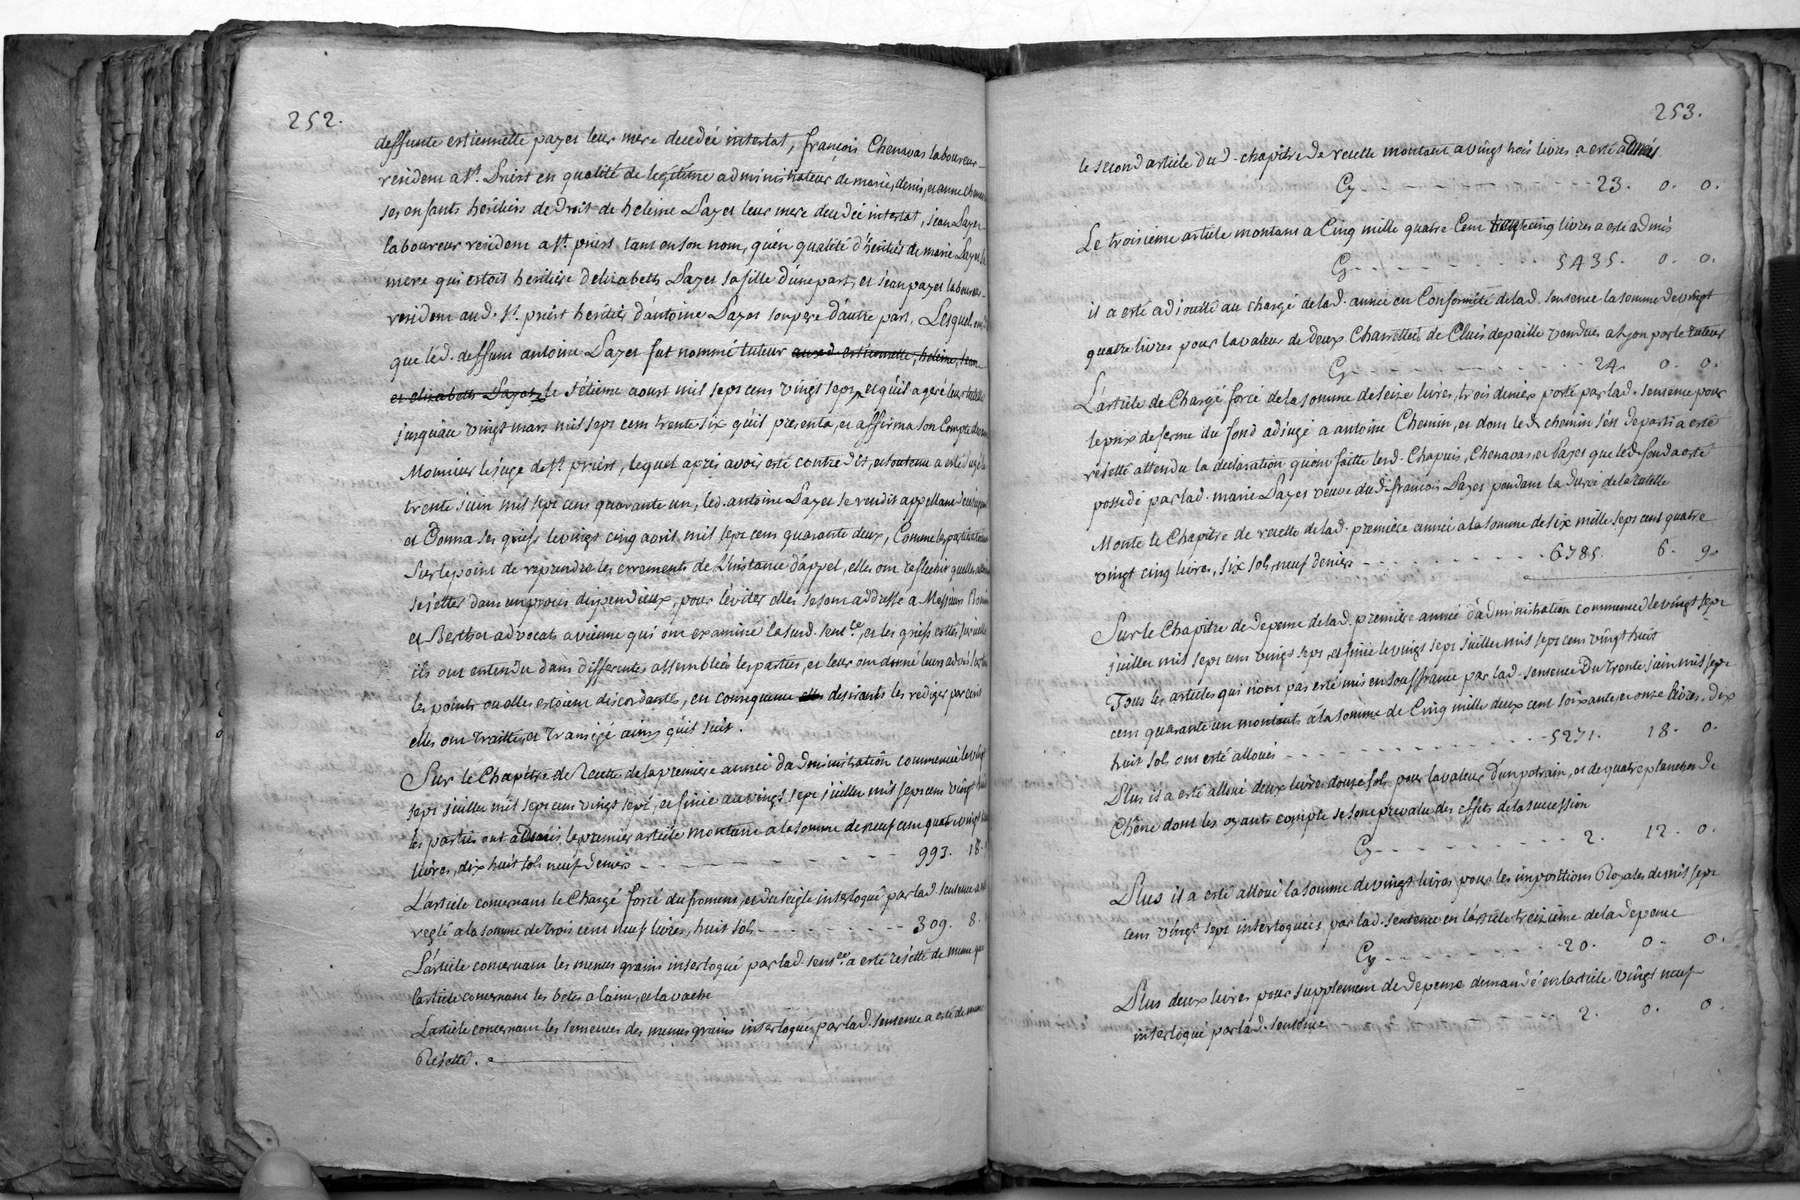 252.
deffunte estiennette payet leur mere decedée intestat, françois Chenavas laboureur
resident a St. Priest en qualité de legitime administrateur de marie, denis, et anne chenavas
ses enfants heritiers de droit de heleine Payet leur mere decedée intestat, jean Payet
laboureur resident a St. priest tant en son nom, qu'en qualité d'heritier de marie Payet sa
mere qui estoit heritiere delizabeth Payet sa fille d'une part, et jean payet laboureur
resident aud. St. priest heritier d'antoine Payet son pere d'autre part, Lesquels
que led. deffunt antoine Payet fut nommé tuteur auxd. estiennette, heleine, jean
et elizabeth Payet le setieme aoust mil sept cens vingt sept, et qu'il a geré leur tutelle
jusqu'au vingt mars mil sept cent trente six qu'il presenta, et affirma son Compte
Monsieur le juge de St. priest, lequel aprés avoir esté contredit, et soutenu a esté
trente juin mil sept cens quarante un, led. antoine Payet se rendit appellant
et Donna ses griefs le vingt cinq avril mil sept cens quarante deux, Comme les parties
sur le point de reprendre les errements de L'instance d'appel, elles ont reflechir quelles
se jetter dans un procés dispendieux, pour l'eviter elles se sont addressé a Messieurs
et Berthet advocats a vienne qui ont examiné la susd. sence. et les griefs
ils ont entendu dans differentes assemblées les parties, et leur ont donné leurs advis sur
les points ou elles estoient discordantes, en consequence elles desirants les rediger par ecrit
elles ont traittés, et transigé ainsy quil suit.
Sur le Chapitre de Recette de la premiere année d'administration commencée le vingt
sept juillet mil sept cens vingt sept, et finie au vingt sept juillet mil sept cens vingt huit
les parties ont admis le premier article montant a la somme de neuf cent quatre vingt
livres, dix huit sols neuf deniers - - - - - 993. 18.
L'article concernant le Chargé forcé du froment, et du seigle interloqué par lad. sentence a esté
reglé a la somme de trois cent neuf livres, huit sols - - - - 309. 8.
L'article concernant les menus grains interloqué par lad. sence. a esté rejetté de meme que
l'article concernant les betes a laine, et la vache
L'article concernant les semences des menus grains interloquées par lad. sentence a esté de meme
Rejetté.
253.
le second article dud. chapitre de recette montant a vingt trois livres a esté admis
Cy - - - - - 23. 0. 0.
Le troisieme article montant a Cinq mille quatre Cent trente cinq livres a esté admis
Cy - - - - - 5435. 0. 0.
il a esté adjoutté au chargé de lad. année en Conformité de lad. sentence la somme de vingt
quatre livres pour la valeur de deux Charrettées de Clui de paille vendues a Lyon par le tuteur
Cy - - - - - 24. 0. 0.
L'article de Chargé forcé de la somme de seize livres, trois deniers porté par lad. sentence pour
le prix de ferme du fond adjugé a antoine Chemin, et dont led. chemin s'en departi a esté
rejetté attendu la declaration qu'ont faitte lesd. Chapuis, Chenavas, et Payet que led. fond a esté
possedé par lad. marie Payet veuve dud. françois Payet pendant la durée de la tutelle
Monte le Chapitre de recette de lad. premiere année a la somme de six mille sept cent quatre
vingt cinq livres, six sols, neuf deniers - - - - - 6785. 6. 9.
Sur le Chapitre de depense de lad. premiere année d'administration commencée le vingt sept
juillet mil sept cent vingt sept, et finie le vingt sept juillet mil sept cens vingt huit
Tous les articles qui n'ont pas esté mis en souffrance par lad. sentence du trente juin mil sept
cent quarante un montants a la somme de Cinq mille deux cent soixante, et onze livres, dix
huit sols ont esté alloués - - - - - 5271. 18. 0.
Plus il a esté alloué deux livres douze sols pour la valeur d'un potrain, et de quatre planches de
Chêne dont les oyants compte se sont prevalu des effets de la succession
Cy - - - - - 2. 12. 0.
Plus il a esté alloué la somme de vingt livres pour les impositions Royales de mil sept
cens vingt sept interloquées, par lad. sentence en l'article treizieme de la depense
Cy - - - - - 20. 0. 0.
Plus deux livres pour supplement de depense demandé en l'article vingt neuf
interloqué par lad. sentence 2. 0. 0.